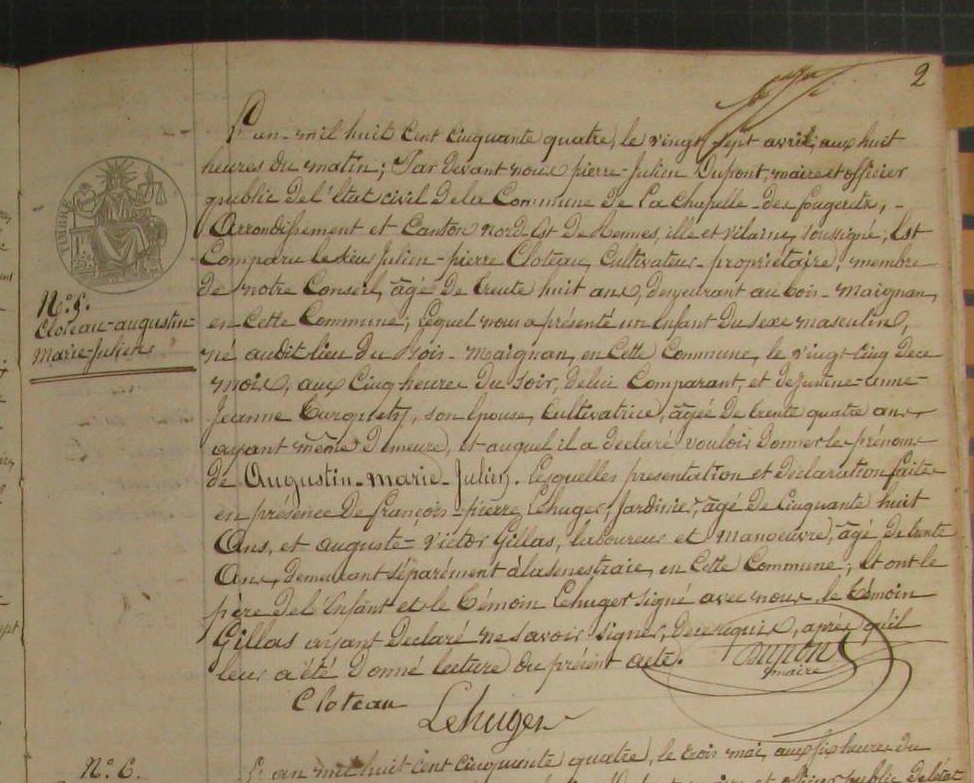 2
L'an mil huit cent cinquante quatre, le vingt sept avril, aux huit
heures du matin; Par Devant nous pierre-Julien Dupont, maire et officier
public De l'état civil De la Commune De La Chapelle-des fougeretz, -
Arrondissement et Canton nord Est De Rennes, ille et vilaine, soussigné; Est
Comparu le sieur Julien-pierre Cloteau, Cultivateur-propriétaire, membre
TIMBRE
De notre Conseil, âgé De trente huit ans, demeurant au bois-Maignan,
N.º 5.
Cloteau-augustin-
Marie-Julien
en Cette Commune; lequel nous a présenté un enfant Du sexe masculin,
né audit lieu Du Bois-Maignan, en Cette Commune, le vingt-cinq De ce
mois, aux Cinq heures Du soir, de lui Comparant, et de Justine-anne-
Jeanne, son épouse, Cultivatrice, âgée De trente quatre ans
ayant même Demeure, et auquel il a déclaré vouloir Donner les prénoms
de Augustin-marie-Julien. Lesquelles présentation et déclaration faites
en présence De françois-pierre Lehuger, Jardinier, âgé De Cinquante huit
Ans, et auguste-Victor Gillas, laboureur et Manoeuvre, âgé De trente
Ans, demeurant séparément à la senestraie, en Cette Commune; Et ont le
père De l'Enfant et le témoin Lehuger signé avec nous, le témoin
Gillas ayant Déclaré ne savoir signer, De ce requis, après qu'il
leur a été Donné lecture du présent acte. Dupont
maire
Cloteau
Lehuger
N.º 6.
L'an mil huit cent cinquante quatre, le trois mai, aux six heures du